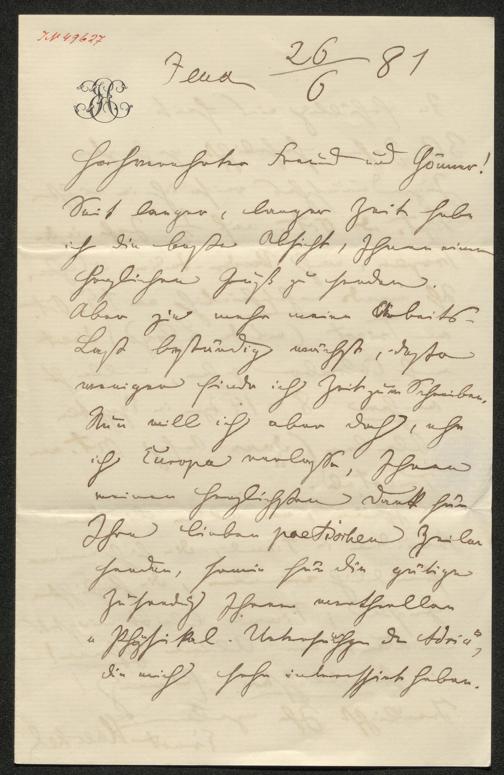 IN 49627
Jena 26/6 81
Hochverehrter Freund und Gönner!
Seit langer, langer Zeit habe
ich die beste Absicht, Ihnen einen
herzlichen Gruß zu senden.
Aber je mehr meine Arbeits-
Last beständig wächst, desto
weniger finde ich Zeit zum Schreiben.
Nun will ich aber doch, ehe
ich Europa verlasse, Ihnen
meinen herzlichsten Dank für
Ihre lieben poetischen Zeilen
senden, sowie für die gütige
Zusendg Ihrer werthvollen
"Physikal. Untersuchgen der Adria",
die mich sehr interessirt haben.